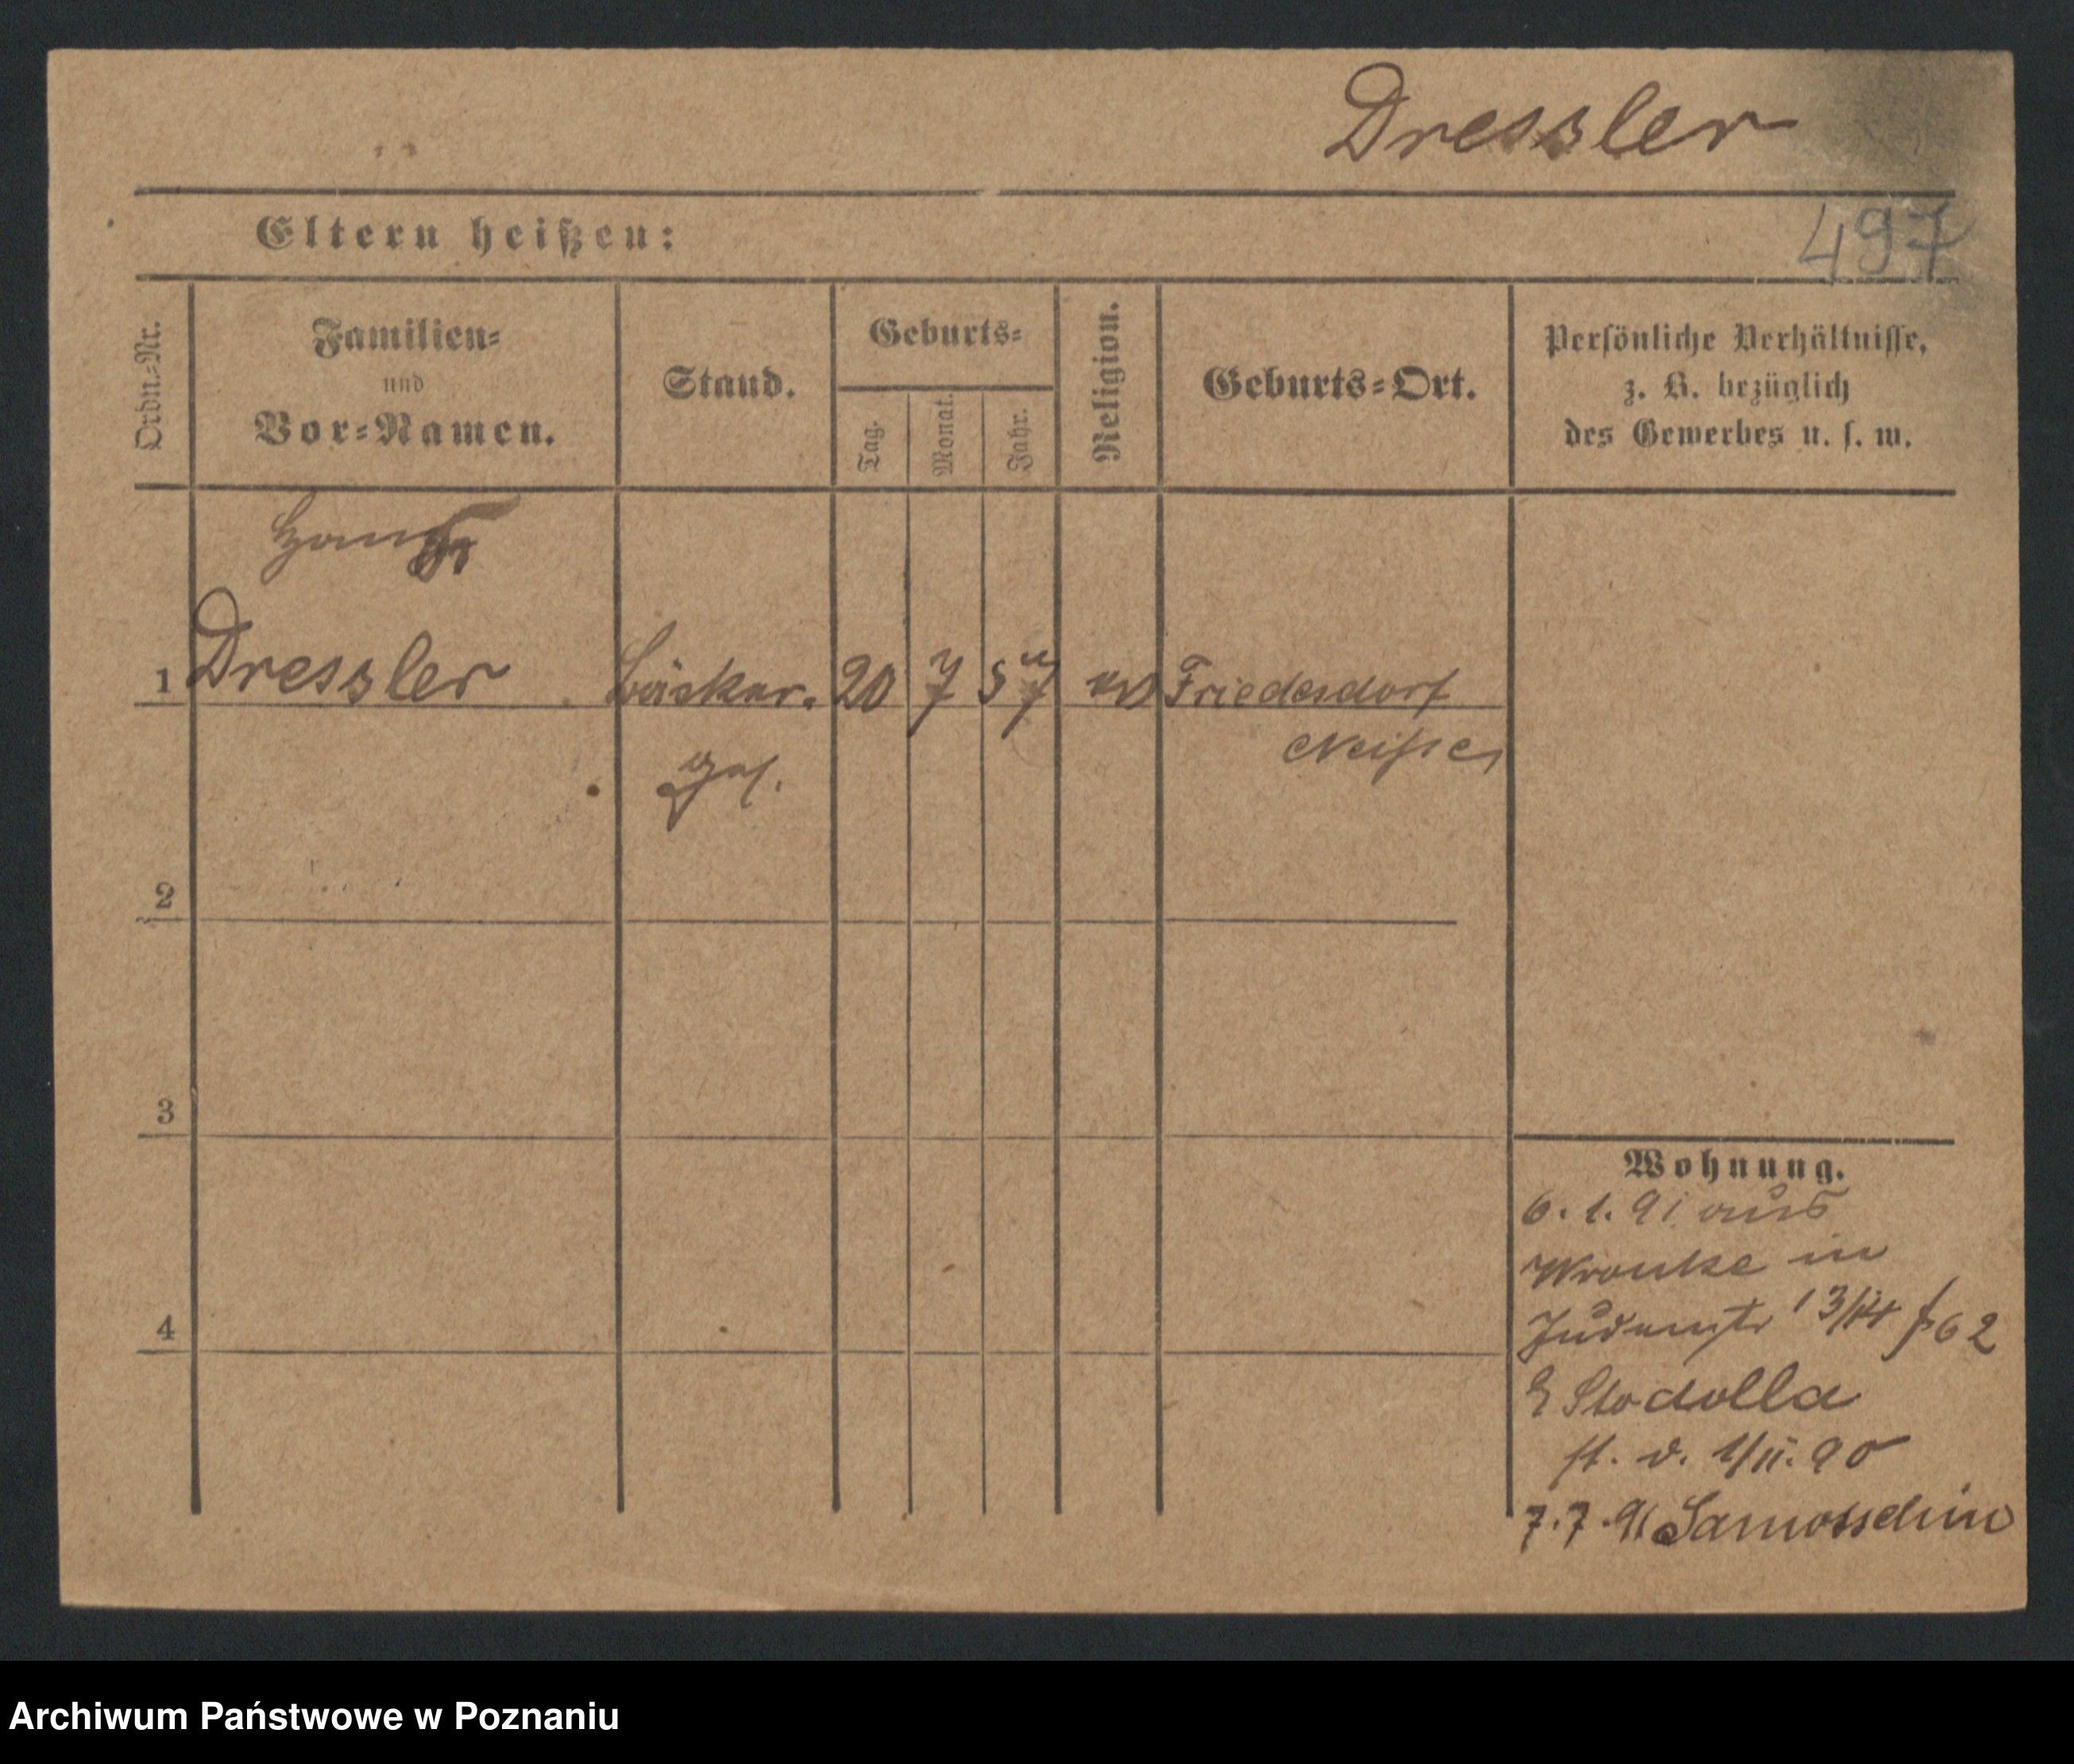 Dressler
Eltern heißen:
497
Ordn.-Nr.
Familien-
und
Vor-Namen.
Stand.
Geburts-
Tag.
Monat.
Jahr.
Religion.
Geburts-Ort.
Persönliche Verhältnisse,
z. B. bezüglich
des Gewerbes u. s. w.
1 Dressler Bäcker. 20 7 57 ev Friedesdorf
Neisse
Ges.
2
3
4
Wohnung.
6. 1. 91 aus
Wronke in
Judenstr 13/14 f 62
Slodolla
st. v. 1/11. 90
7. 7. 91 Samotschin
Archiwum Państwowe w Poznaniu